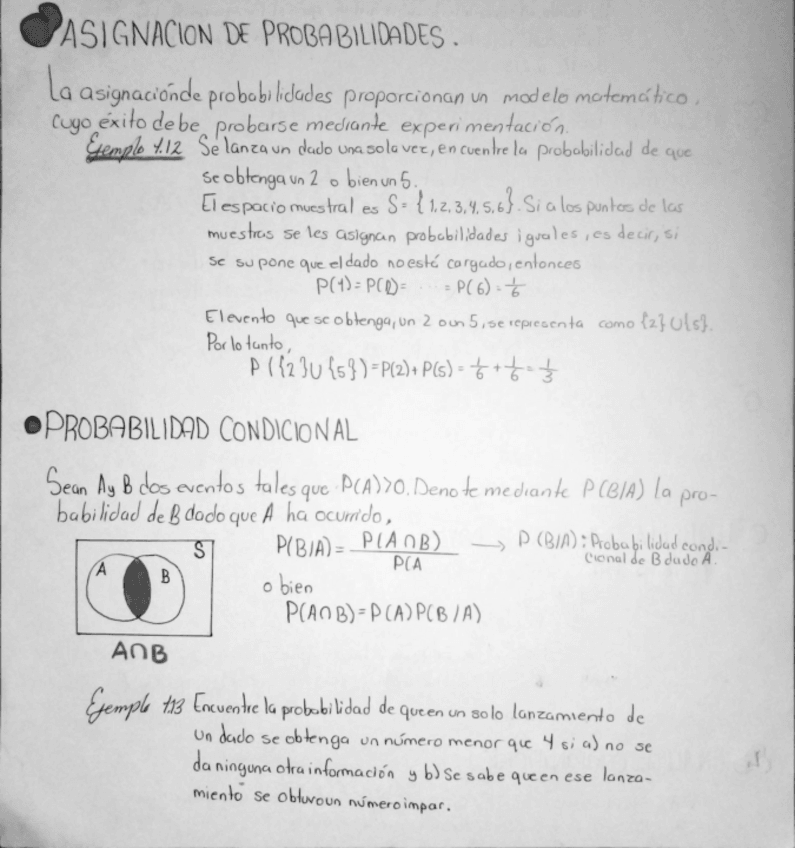 ASIGNACION DE PROBABILIDADES.
La asignaciónde probabilidades proporcionan un modelo matemático,
cuyo éxito debe probarse mediante experimentación.
Ejemplo 1.12 Se lanza un dado una sola vez, encuentre la probabilidad de que
se obtenga un 2 o bien un 5.
El espacio muestral es S = {1,2,3,4,5,6}. Si a los puntos de las
muestras se les asignan probabilidades iguales, es decir, si
se supone que el dado no esté cargado, entonces
P(1) = P(2) = . . . = P(6) = 1/6
El evento que se obtenga, un 2 o un 5, se representa como {2} U {5}.
Por lo tanto,
P({2} U {5}) = P(2) + P(5) = 1/6 + 1/6 = 1/3
PROBABILIDAD CONDICIONAL
Sean A y B dos eventos tales que P(A)>0. Denote mediante P(B/A) la pro-
babilidad de B dado que A ha ocurrido,
P(B/A) = P(A∩B) / P(A → P(B/A): Probabilidad condi-
cional de B dado A.
S
A
B
A∩B
o bien
P(A∩B) = P(A) P(B/A)
Ejemplo 1.13 Encuentre la probabilidad de que en un solo lanzamiento de
un dado se obtenga un número menor que 4 si a) no se
da ninguna otra información y b) Se sabe que en ese lanza-
miento se obtuvo un número impar.